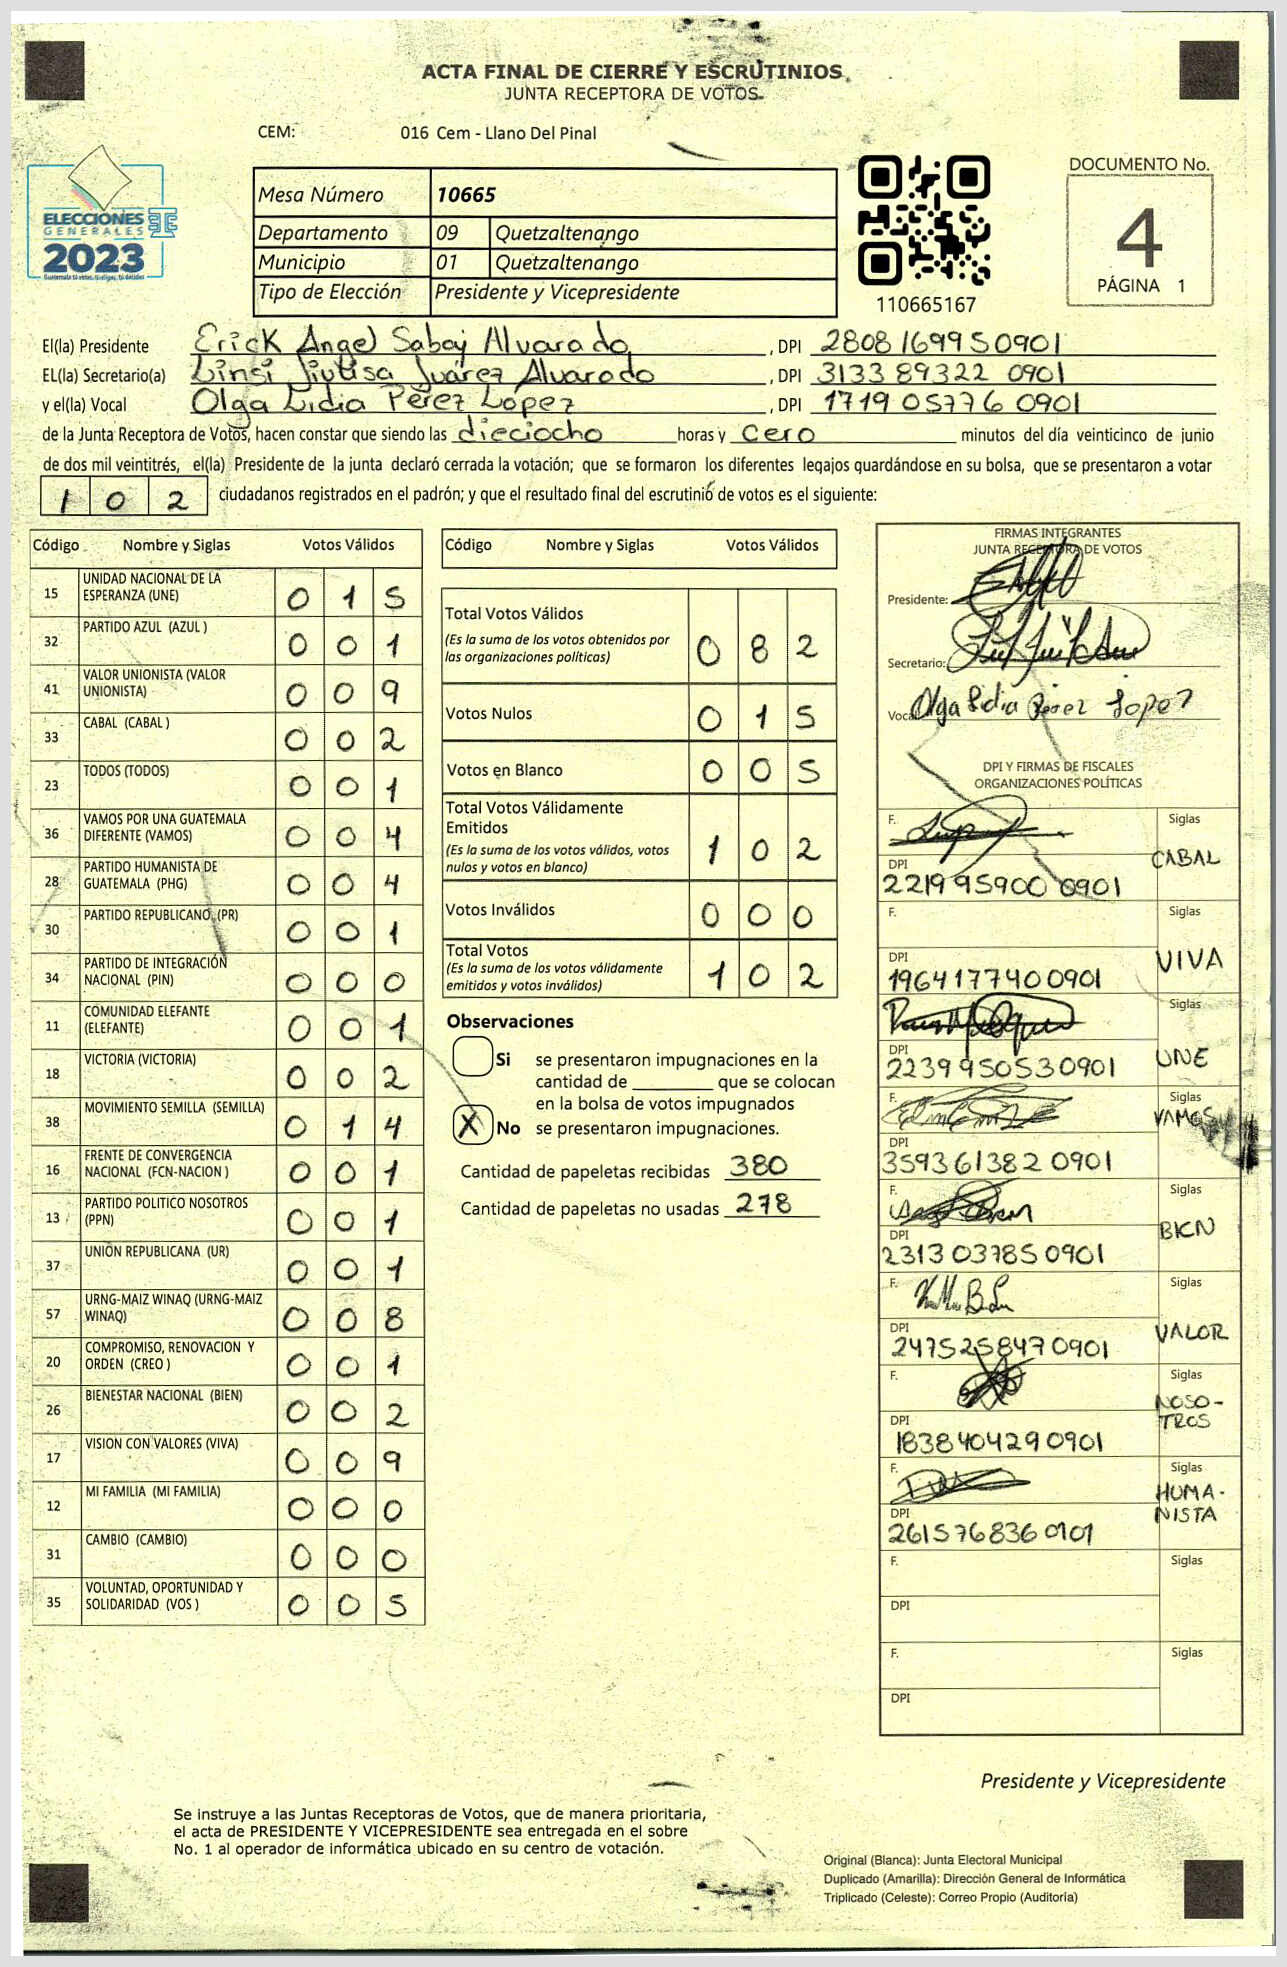 ACTA FINAL DE CIERRE Y ESCRUTINIOS
JUNTA RECEPTORA DE VOTOS
CEM: 016 Cem - Llano Del Pinal
ELECCIONES
GENERALES
2023
Mesa Número 10665
Departamento 09 Quetzaltenango
Municipio 01 Quetzaltenango
Tipo de Elección Presidente y Vicepresidente
110665167
DOCUMENTO No.
4
PÁGINA 1
El(la) Presidente Erick Angel Sabaj Alvarado, DPI 2808169950901
EL(la) Secretario(a) Juárez Alvarado, DPI 3133893220901
y el(la) Vocal Olga Lidia Pérez López, DPI 1719057760901
de la Junta Receptora de Votos, hacen constar que siendo las dieciocho horas y cero minutos del día veinticinco de junio
de dos mil veintitrés, el(la) Presidente de la junta declaró cerrada la votación; que se formaron los diferentes legajos guardándose en su bolsa, que se presentaron a votar
1 0 2 ciudadanos registrados en el padrón; y que el resultado final del escrutinio de votos es el siguiente:
Código Nombre y Siglas Votos Válidos
15 UNIDAD NACIONAL DE LA ESPERANZA (UNE) 0 1 5
32 PARTIDO AZUL (AZUL ) 0 0 1
41 VALOR UNIONISTA (VALOR UNIONISTA) 0 0 9
33 CABAL (CABAL ) 0 0 2
23 TODOS (TODOS) 0 0 1
36 VAMOS POR UNA GUATEMALA DIFERENTE (VAMOS) 0 0 4
28 PARTIDO HUMANISTA DE GUATEMALA (PHG) 0 0 4
30 PARTIDO REPUBLICANO (PR) 0 0 1
34 PARTIDO DE INTEGRACIÓN NACIONAL (PIN) 0 0 0
11 COMUNIDAD ELEFANTE (ELEFANTE) 0 0 1
18 VICTORIA (VICTORIA) 0 0 2
38 MOVIMIENTO SEMILLA (SEMILLA) 0 1 4
16 FRENTE DE CONVERGENCIA NACIONAL (FCN-NACION ) 0 0 1
13 PARTIDO POLITICO NOSOTROS (PPN) 0 0 1
37 UNIÓN REPUBLICANA (UR) 0 0 1
57 URNG-MAIZ WINAQ (URNG-MAIZ WINAQ) 0 0 8
20 COMPROMISO, RENOVACION Y ORDEN (CREO ) 0 0 1
26 BIENESTAR NACIONAL (BIEN) 0 0 2
17 VISION CON VALORES (VIVA) 0 0 9
12 MI FAMILIA (MI FAMILIA) 0 0 0
31 CAMBIO (CAMBIO) 0 0 0
35 VOLUNTAD, OPORTUNIDAD Y SOLIDARIDAD (VOS ) 0 0 5
Código Nombre y Siglas Votos Válidos
Total Votos Válidos 0 8 2
(Es la suma de los votos obtenidos por
las organizaciones políticas)
Votos Nulos 0 1 5
Votos en Blanco 0 0 5
Total Votos Válidamente
Emitidos 1 0 2
(Es la suma de los votos válidos, votos
nulos y votos en blanco)
Votos Inválidos 0 0 0
Total Votos 1 0 2
(Es la suma de los votos válidamente
emitidos y votos inválidos)
Observaciones
Si se presentaron impugnaciones en la
cantidad de ________ que se colocan
en la bolsa de votos impugnados
X No se presentaron impugnaciones.
Cantidad de papeletas recibidas 380
Cantidad de papeletas no usadas 278
FIRMAS INTEGRANTES
JUNTA RECEPTORA DE VOTOS
Presidente:
Secretario:
Vocal Olga Lidia Pérez López
DPI Y FIRMAS DE FISCALES
ORGANIZACIONES POLÍTICAS
F. Siglas
CABAL
DPI
2219959000901
F. Siglas
VIVA
DPI
1964177400901
Siglas
UNE
DPI
2239950530901
F. Siglas
VAMOS
DPI
3593613820901
F. Siglas
BIEN
DPI
2313037850901
F. Siglas
VALOR
DPI
2475258470901
F. Siglas
NOSO-
TROS
DPI
1838404290901
F. Siglas
HUMA-
NISTA
DPI
2615768360101
F. Siglas
DPI
F. Siglas
DPI
Presidente y Vicepresidente
Se instruye a las Juntas Receptoras de Votos, que de manera prioritaria,
el acta de PRESIDENTE Y VICEPRESIDENTE sea entregada en el sobre
No. 1 al operador de informática ubicado en su centro de votación.
Original (Blanca): Junta Electoral Municipal
Duplicado (Amarilla): Dirección General de Informática
Triplicado (Celeste): Correo Propio (Auditoría)